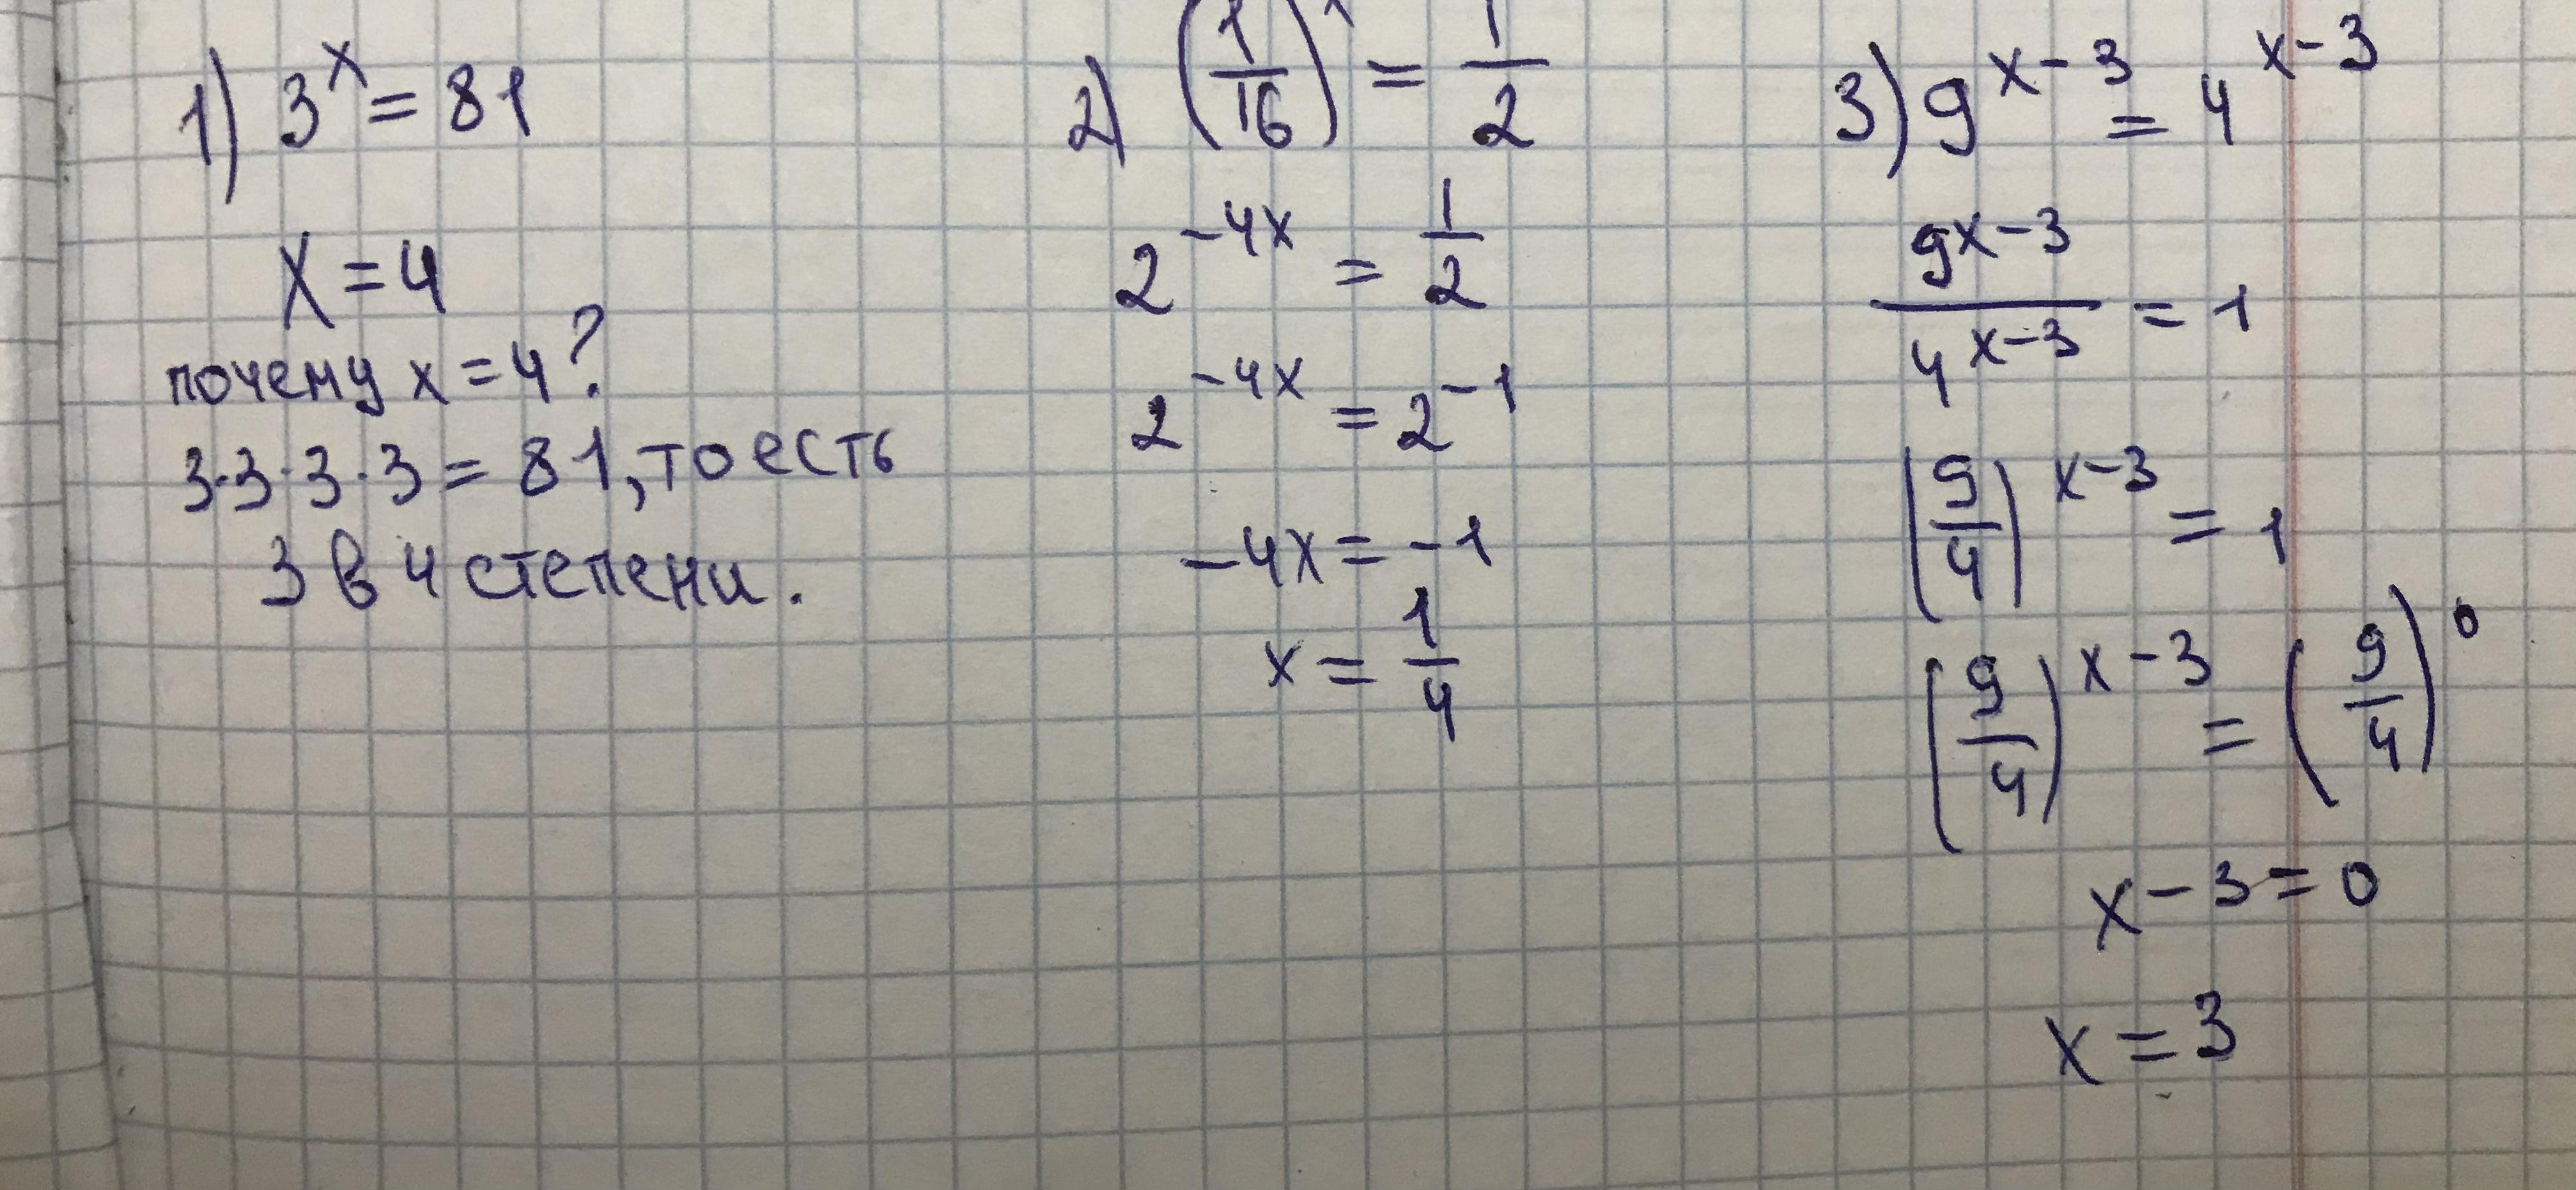 1) 3^x = 81
x = 4
почему x = 4?
3·3·3·3 = 81, то есть
3 в 4 степени.
2) (1/16)^x = 1/2
2^(-4x) = 1/2
2^(-4x) = 2^(-1)
-4x = -1
x = 1/4
3) 9^(x-3) = 4^(x-3)
9^(x-3)/4^(x-3) = 1
(9/4)^(x-3) = 1
(9/4)^(x-3) = (9/4)^0
x - 3 = 0
x = 3